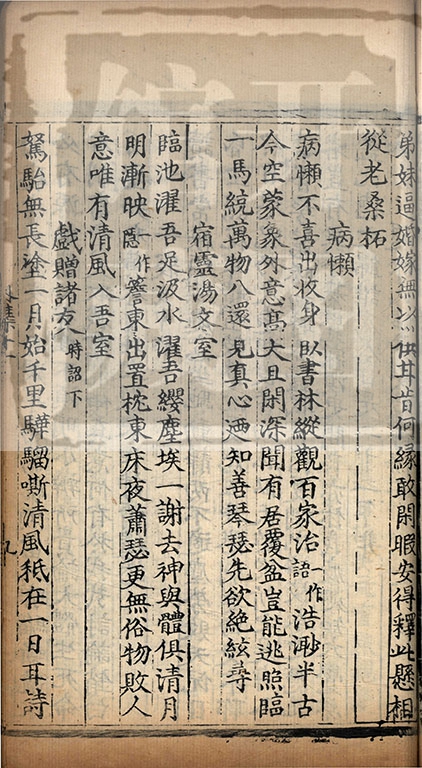 弟妹逼婚嫁無以供甘旨何緣敢閑暇安得釋此懸相
從老桑柘
病懶
病懶不喜出收身臥書林縱觀百家治一作語浩渺半古
今空蒙象外意高大且閑深聞有居覆盆豈能逃照臨
一馬統萬物八還見真心廼知善琴瑟先欲絕絃尋
宿靈湯文室
臨池濯吾足汲水濯吾纓塵埃一謝去神與體俱清月
明漸映一作隱簷東出置枕東床夜蕭瑟更無俗物敗人
意唯有清風入吾室
戲贈諸友時詔下
駑駘無長塗一月始千里驊騮嘶清風秪在一日耳詩